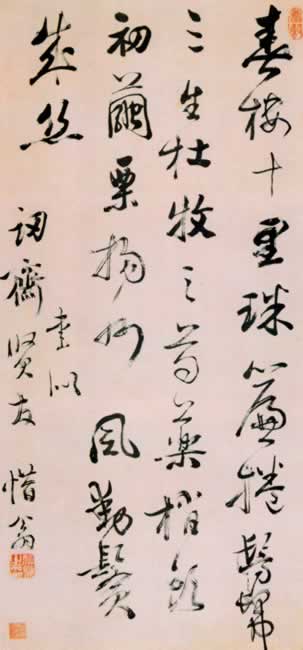 春樓十里珠簾捲髣髴
三生杜牧之芍藥梢頭
初繭栗揚州風動鬢
成絲
書似
齋賢友 惜翁